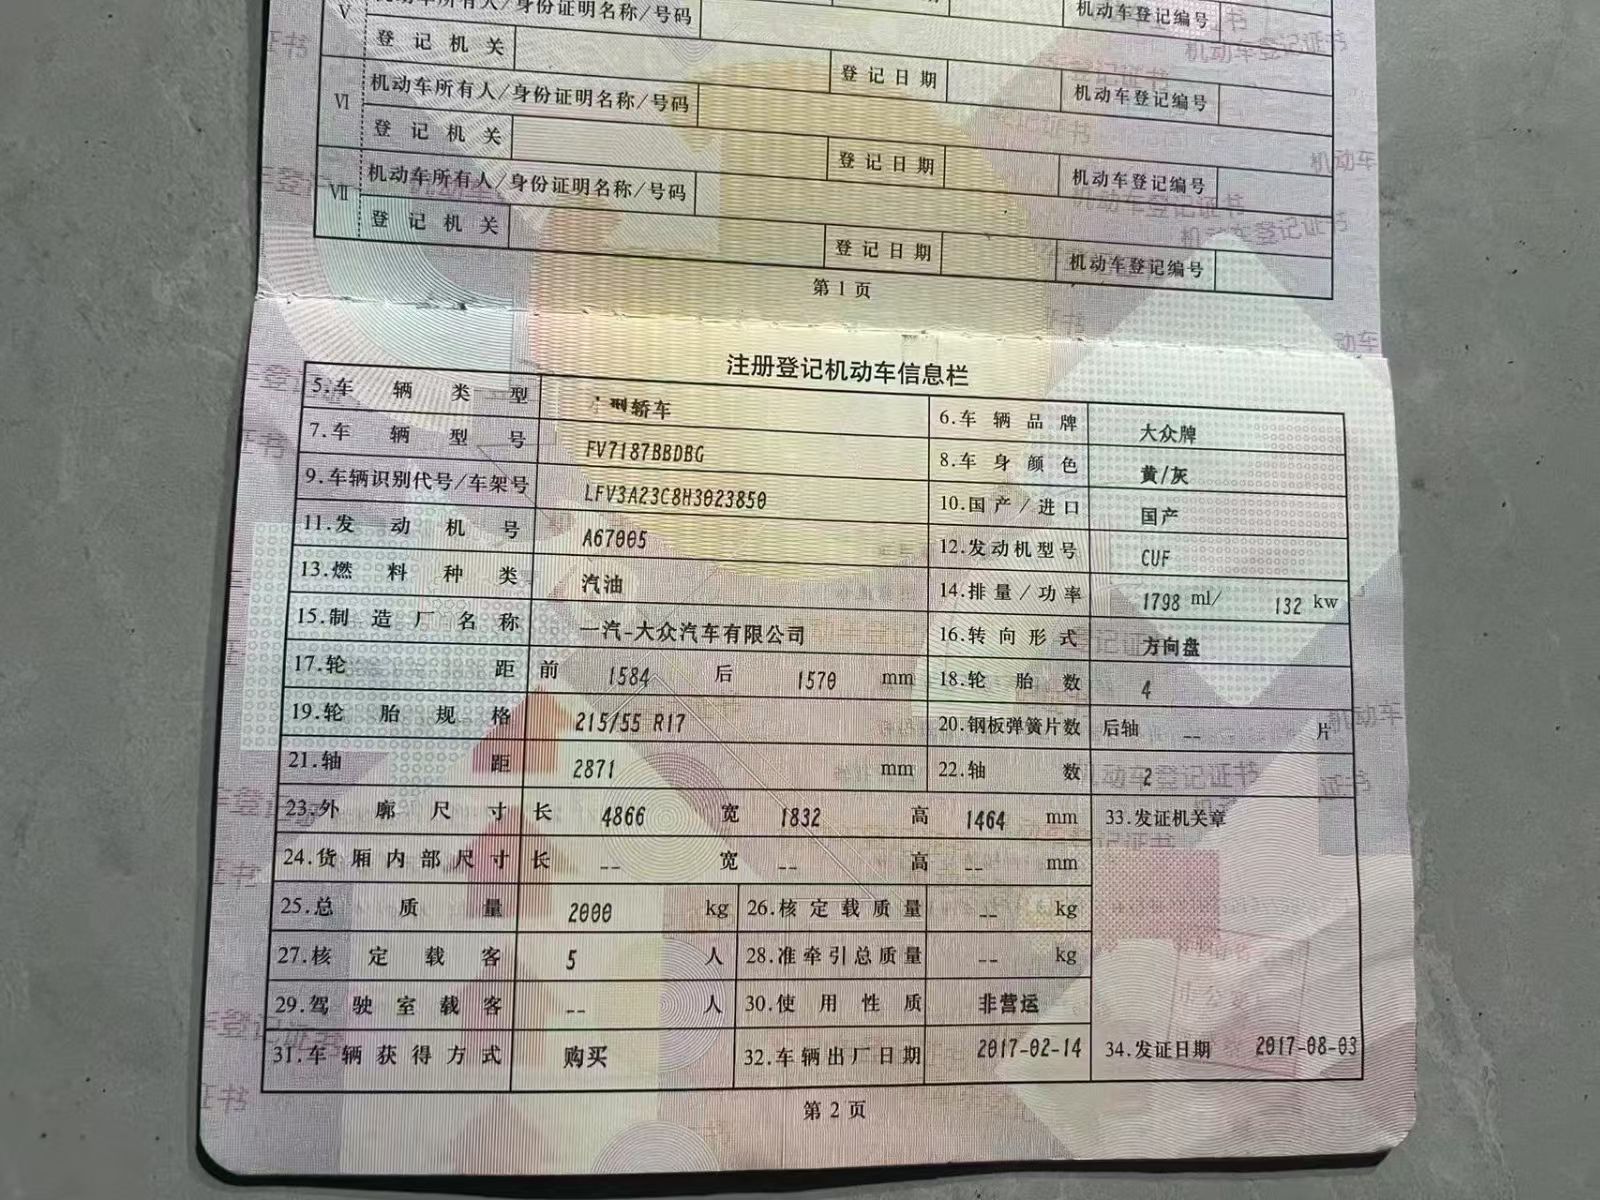 V 机动车所有人/身份证明名称/号码 机动车登记编号
登记机关 登记日期
VI 机动车所有人/身份证明名称/号码 机动车登记编号
登记机关 登记日期
VII 机动车所有人/身份证明名称/号码 机动车登记编号
登记机关 登记日期 机动车登记编号
第1页
注册登记机动车信息栏
5.车辆类型 型轿车 6.车辆品牌 大众牌
7.车辆型号 FV7187BBDBG 8.车身颜色 黄/灰
9.车辆识别代号/车架号 LFV3A23C8H3023850 10.国产/进口 国产
11.发动机号 A67005 12.发动机型号 CUF
13.燃料种类 汽油 14.排量/功率 1798 ml/ 132 kw
15.制造厂名称 一汽-大众汽车有限公司 16.转向形式 方向盘
17.轮距 前 1584 后 1570 mm 18.轮胎数 4
19.轮胎规格 215/55 R17 20.钢板弹簧片数 后轴 -- 片
21.轴距 2871 mm 22.轴数 2
23.外廓尺寸 长 4866 宽 1832 高 1464 mm 33.发证机关章
24.货厢内部尺寸 长 -- 宽 -- 高 -- mm
25.总质量 2000 kg 26.核定载质量 -- kg
27.核定载客 5 人 28.准牵引总质量 -- kg
29.驾驶室载客 -- 人 30.使用性质 非营运
31.车辆获得方式 购买 32.车辆出厂日期 2017-02-14 34.发证日期 2017-08-03
第2页